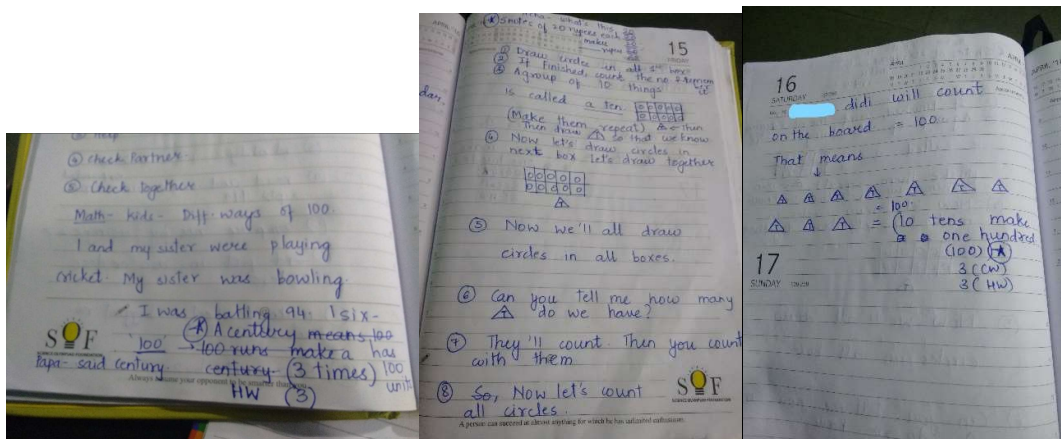 ④ Check Partner.
⑤ Check Together
Math- kids- Diff. ways of 100.
I and my sister were playing
cricket. My sister was bowling.
I was batting 94. 1 six-
A century means 100
'100' → 100 runs make a has
Papa- said century. century (3 times) 100
units
HW (3)
SOF
15
5 notes of 20 rupees each
makes
① Draw circles in all 5
② If finished, count the no
③ A group of 10 things
is called a ten.
(Make them repeat)
Then draw T so that we know
④ Now let's draw circles in
next box let's draw together
T
⑤ Now we'll all draw
circles in all boxes.
⑥ Can you tell me how many
T do we have?
⑦ They'll count. Then you count
with them.
⑧ So, Now let's count
all circles.
SOF
A person can succeed at almost anything for which he has unlimited enthusiasm.
16
SATURDAY
didi will count
on the board = 100.
That means
↓
T T T T T T T
= 100.
T T T = (10 tens make
one hundred
(100)
17
SUNDAY
3 (CW)
3 (HW)